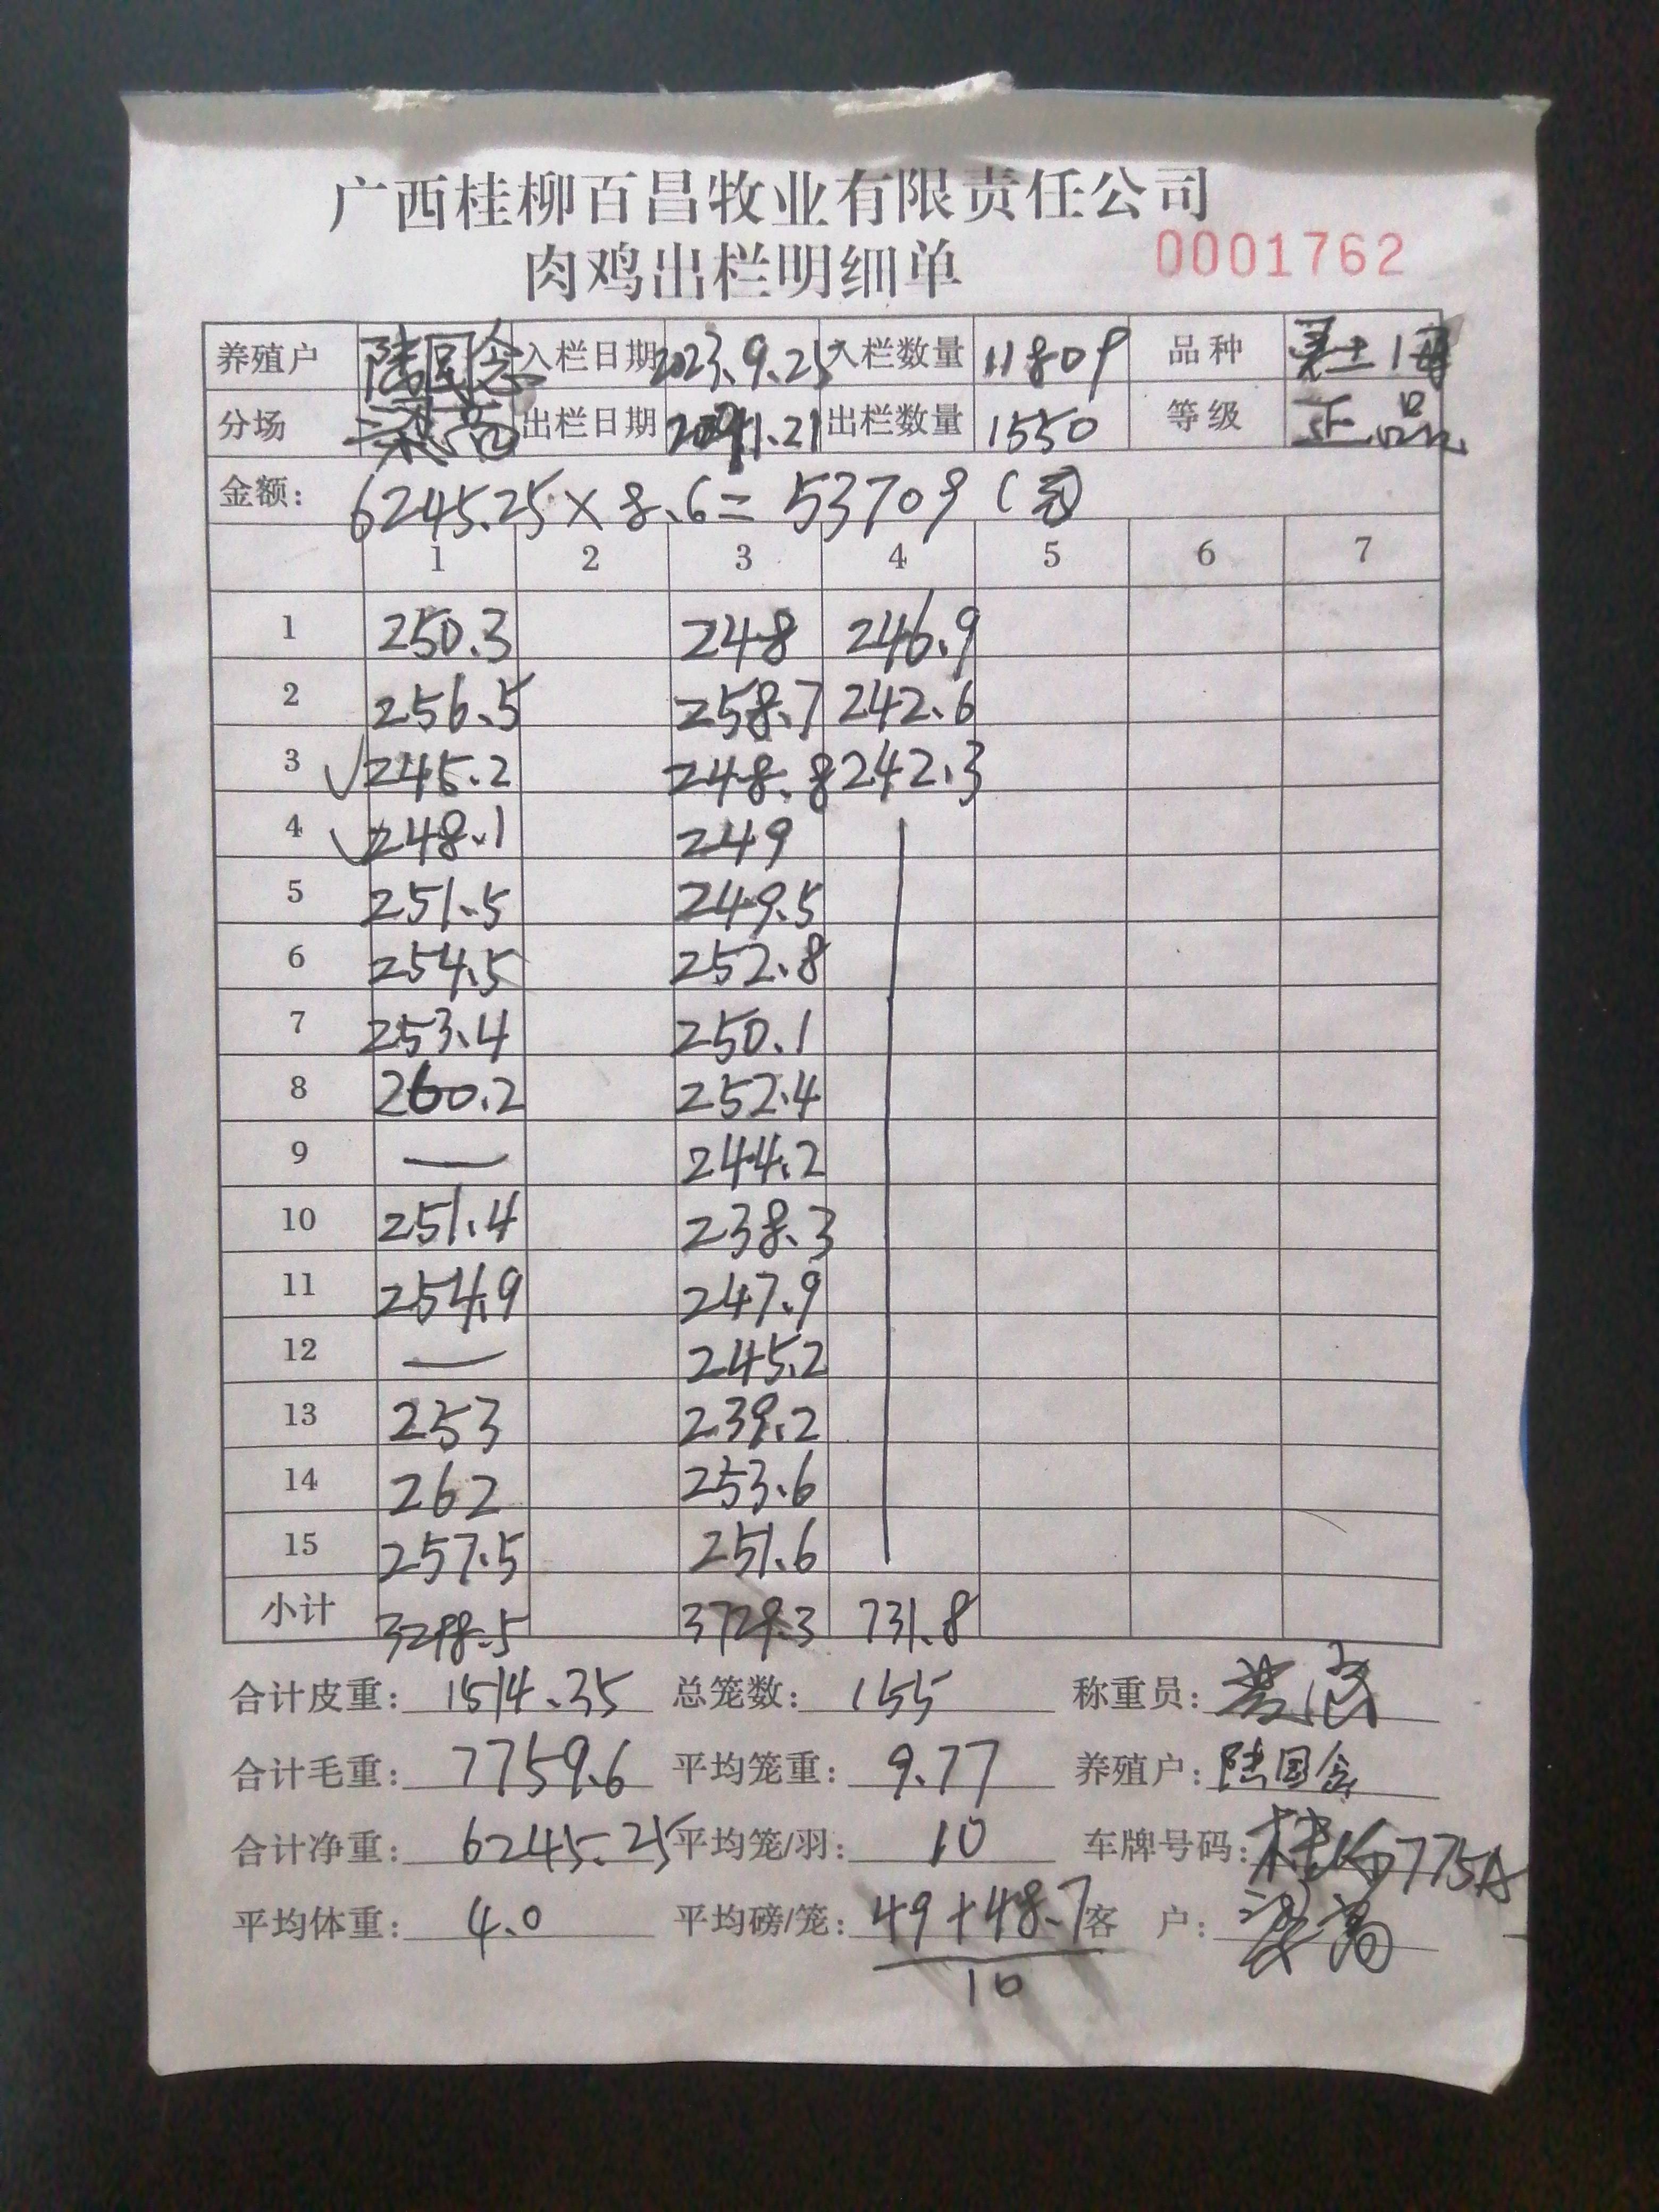 广西桂柳百昌牧业有限责任公司
肉鸡出栏明细单 0001762
养殖户 陆国念 入栏日期 2023.9.25 入栏数量 11809 品种
分场 出栏日期 出栏数量 1550 等级 正品
金额: 6245.25×8.6=53709(元)
1 2 3 4 5 6 7
1 250.3 248 246.9
2 256.5 258.7 242.6
3 √245.2 248.8 242.3
4 √248.1 249
5 251.5 249.5
6 254.5 252.8
7 253.4 250.1
8 260.2 252.4
9 — 244.2
10 251.4 238.3
11 254.9 247.9
12 — 245.2
13 253 239.2
14 262 253.6
15 257.5 251.6
小计 3298.5 3729.3 731.8
合计皮重: 1514.35 总笼数: 155 称重员:
合计毛重: 7759.6 平均笼重: 9.77 养殖户: 陆国念
合计净重: 6245.25 平均笼/羽: 10 车牌号码:
平均体重: 4.0 平均磅/笼: 49+48.7 客 户:
10